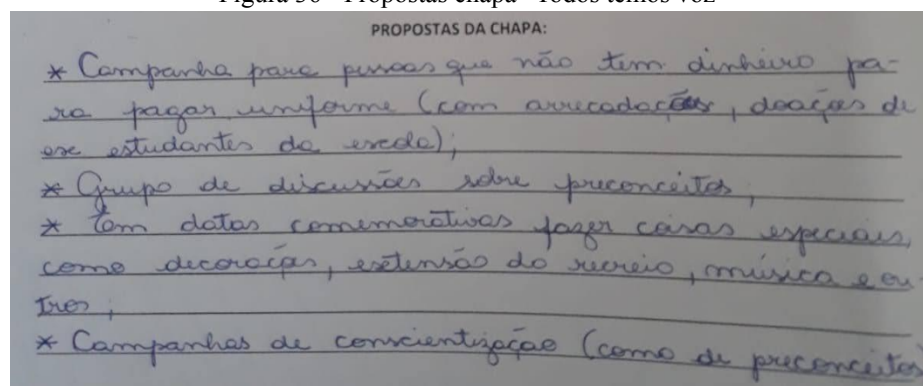 PROPOSTAS DA CHAPA:
* Campanha para pessoas que não tem dinheiro pa-
ra pagar uniforme (com arrecadações, doações de
ex estudantes da escola);
* Grupo de discussões sobre preconceitos;
* Em datas comemorativas fazer coisas especiais,
como decoração, extensão do recreio, música e ou
tros;
* Campanhas de conscientização (como de preconceitos)